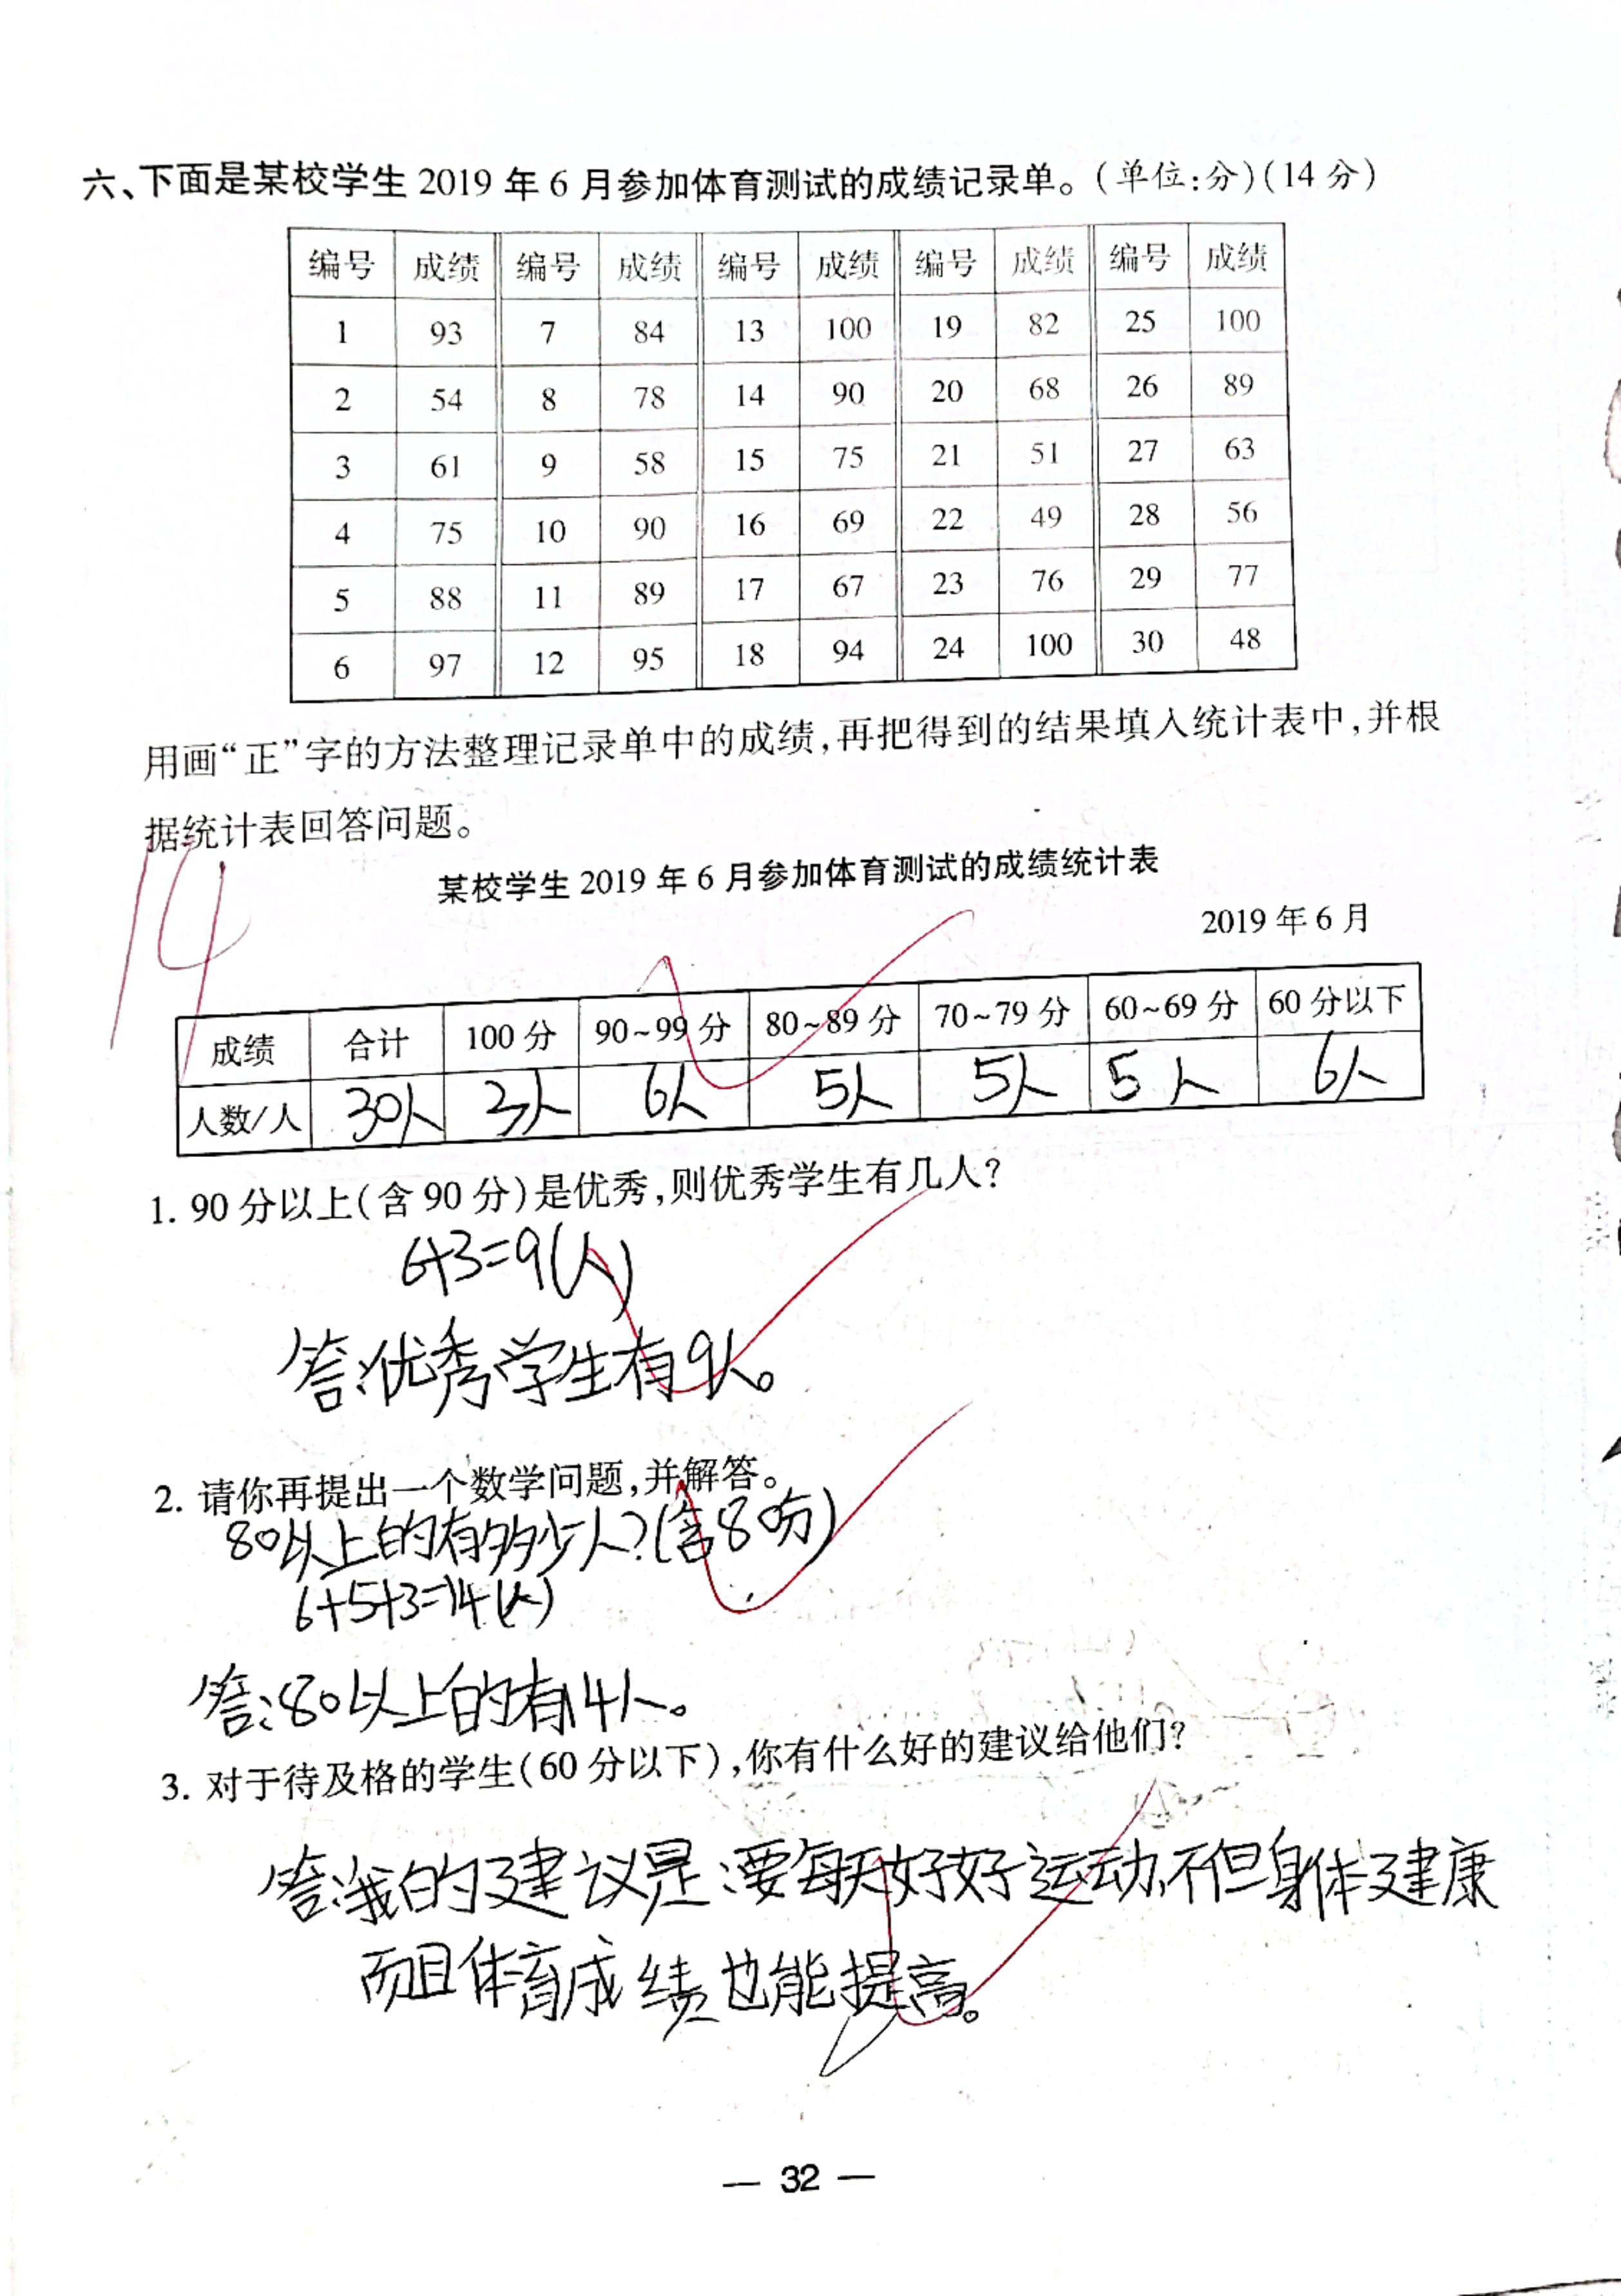 六、下面是某校学生 2019 年 6 月参加体育测试的成绩记录单。(单位:分)(14 分)
编号 成绩 编号 成绩 编号 成绩 编号 成绩 编号 成绩
1 93 7 84 13 100 19 82 25 100
2 54 8 78 14 90 20 68 26 89
3 61 9 58 15 75 21 51 27 63
4 75 10 90 16 69 22 49 28 56
5 88 11 89 17 67 23 76 29 77
6 97 12 95 18 94 24 100 30 48
用画“正”字的方法整理记录单中的成绩,再把得到的结果填入统计表中,并根
据统计表回答问题。
14
某校学生 2019 年 6 月参加体育测试的成绩统计表
2019 年 6 月
成绩 合计 100 分 90~99 分 80~89 分 70~79 分 60~69 分 60 分以下
人数/人 30人 3人 6人 5人 5人 5人 6人
1. 90 分以上(含 90 分)是优秀,则优秀学生有几人?
6+3=9(人)
答:优秀学生有9人。
2. 请你再提出一个数学问题,并解答。
80以上的有多少人?(含80分)
6+5+3=14(人)
答:80以上的有14人。
3. 对于待及格的学生(60 分以下),你有什么好的建议给他们?
答:我的建议是:要每天好好运动,不但身体建康
而且体育成绩也能提高。
— 32 —